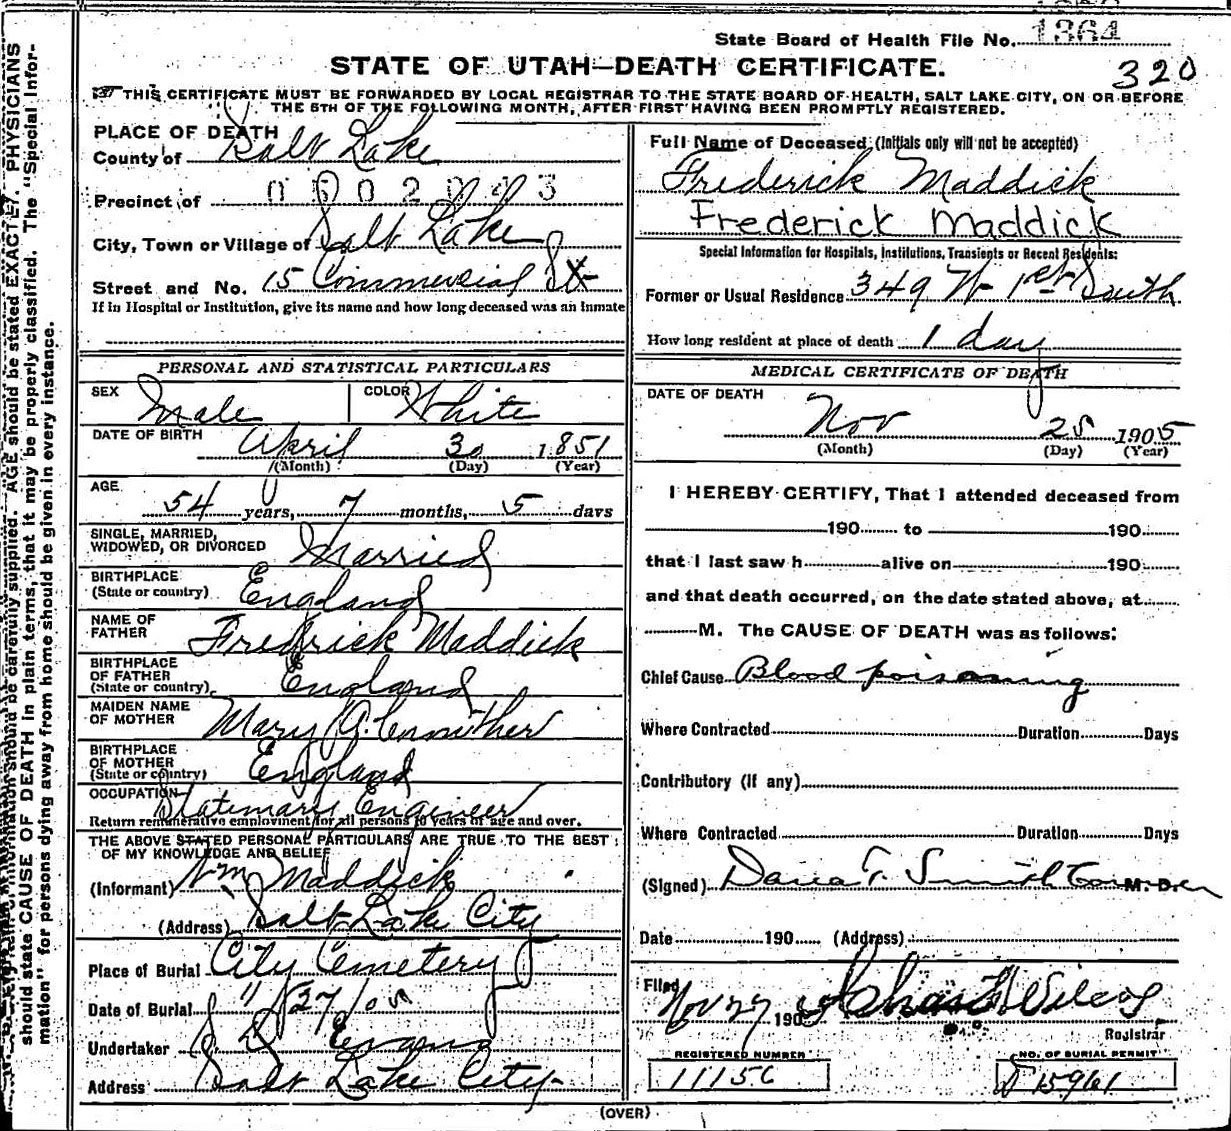 State Board of Health File No. 1364
STATE OF UTAH—DEATH CERTIFICATE.
320
THIS CERTIFICATE MUST BE FORWARDED BY LOCAL REGISTRAR TO THE STATE BOARD OF HEALTH, SALT LAKE CITY, ON OR BEFORE
THE 5TH OF THE FOLLOWING MONTH, AFTER FIRST HAVING BEEN PROMPTLY REGISTERED.
PLACE OF DEATH
County of Salt Lake
Precinct of
City, Town or Village of Salt Lake
Street and No. 15 Commercial St
If in Hospital or Institution, give its name and how long deceased was an inmate
PERSONAL AND STATISTICAL PARTICULARS
SEX Male COLOR White
DATE OF BIRTH April 30 1851
(Month) (Day) (Year)
AGE
54 years, 7 months, 5 days
SINGLE, MARRIED,
WIDOWED, OR DIVORCED Married
BIRTHPLACE
(State or country) England
NAME OF
FATHER Fredrick Maddick
BIRTHPLACE
OF FATHER
(State or country) England
MAIDEN NAME
OF MOTHER Mary
BIRTHPLACE
OF MOTHER
(State or country) England
OCCUPATION Stationary Engineer
Return remunerative employment for all persons 10 years of age and over.
THE ABOVE STATED PERSONAL PARTICULARS ARE TRUE TO THE BEST
OF MY KNOWLEDGE AND BELIEF
(Informant) Wm Maddick
(Address) Salt Lake City
Place of Burial City Cemetery
Date of Burial 11/27/05
Undertaker S D Evans
Address Salt Lake City
Full Name of Deceased (Initials only will not be accepted)
Frederick Maddick
Frederick Maddick
Special Information for Hospitals, Institutions, Transients or Recent Residents:
Former or Usual Residence 349 W 1st South
How long resident at place of death 1 day
MEDICAL CERTIFICATE OF DEATH
DATE OF DEATH
Nov 25 1905
(Month) (Day) (Year)
I HEREBY CERTIFY, That I attended deceased from
190 to 190
that I last saw h alive on 190
and that death occurred, on the date stated above, at
M. The CAUSE OF DEATH was as follows:
Chief Cause Blood poisoning
Where Contracted Duration Days
Contributory (If any)
Where Contracted Duration Days
(Signed) Dana T. Smith M. D.
Date 190 (Address)
Filed Nov 27 190 Wilcox
Registrar
REGISTERED NUMBER
11156
NO. OF BURIAL PERMIT
15961
(OVER)
should be carefully supplied. AGE should be stated EXACTLY. PHYSICIANS
should state CAUSE OF DEATH in plain terms, that it may be properly classified. The "Special Infor-
mation" for persons dying away from home should be given in every instance.